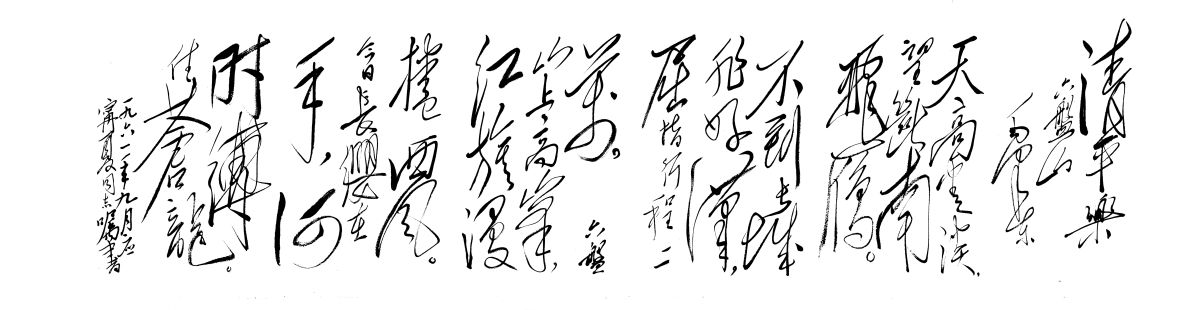 清平樂
六盤山
毛澤東
天高雲淡,
望斷南
飛雁。
不到長城
非好漢,
屈指行程二
萬。六盤
山上高峯,
紅旗漫
捲西風。
今日長纓在
手,何
時縛
住蒼龍。
一九六一年九月應
寧夏同志囑書